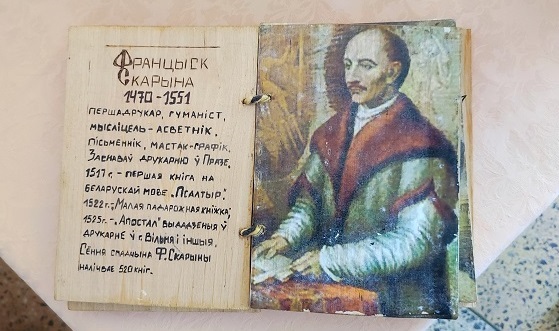 Францыск
Скарына
1470-1551
першадрукар, гуманіст,
мысліцель-асветнік,
пісьменнік, мастак-графік,
Заснаваў друкарню ў Празе.
1517 г. - першая кніга на
беларускай мове „Псалтыр".
1522 г. „Малая падарожная кніжка"
1525 г. - „Апостал" выдадзеныя ў
друкарне ў г. Вільня і іншыя.
Сёння спадчына Ф. Скарыны
налічвае 520 кніг.